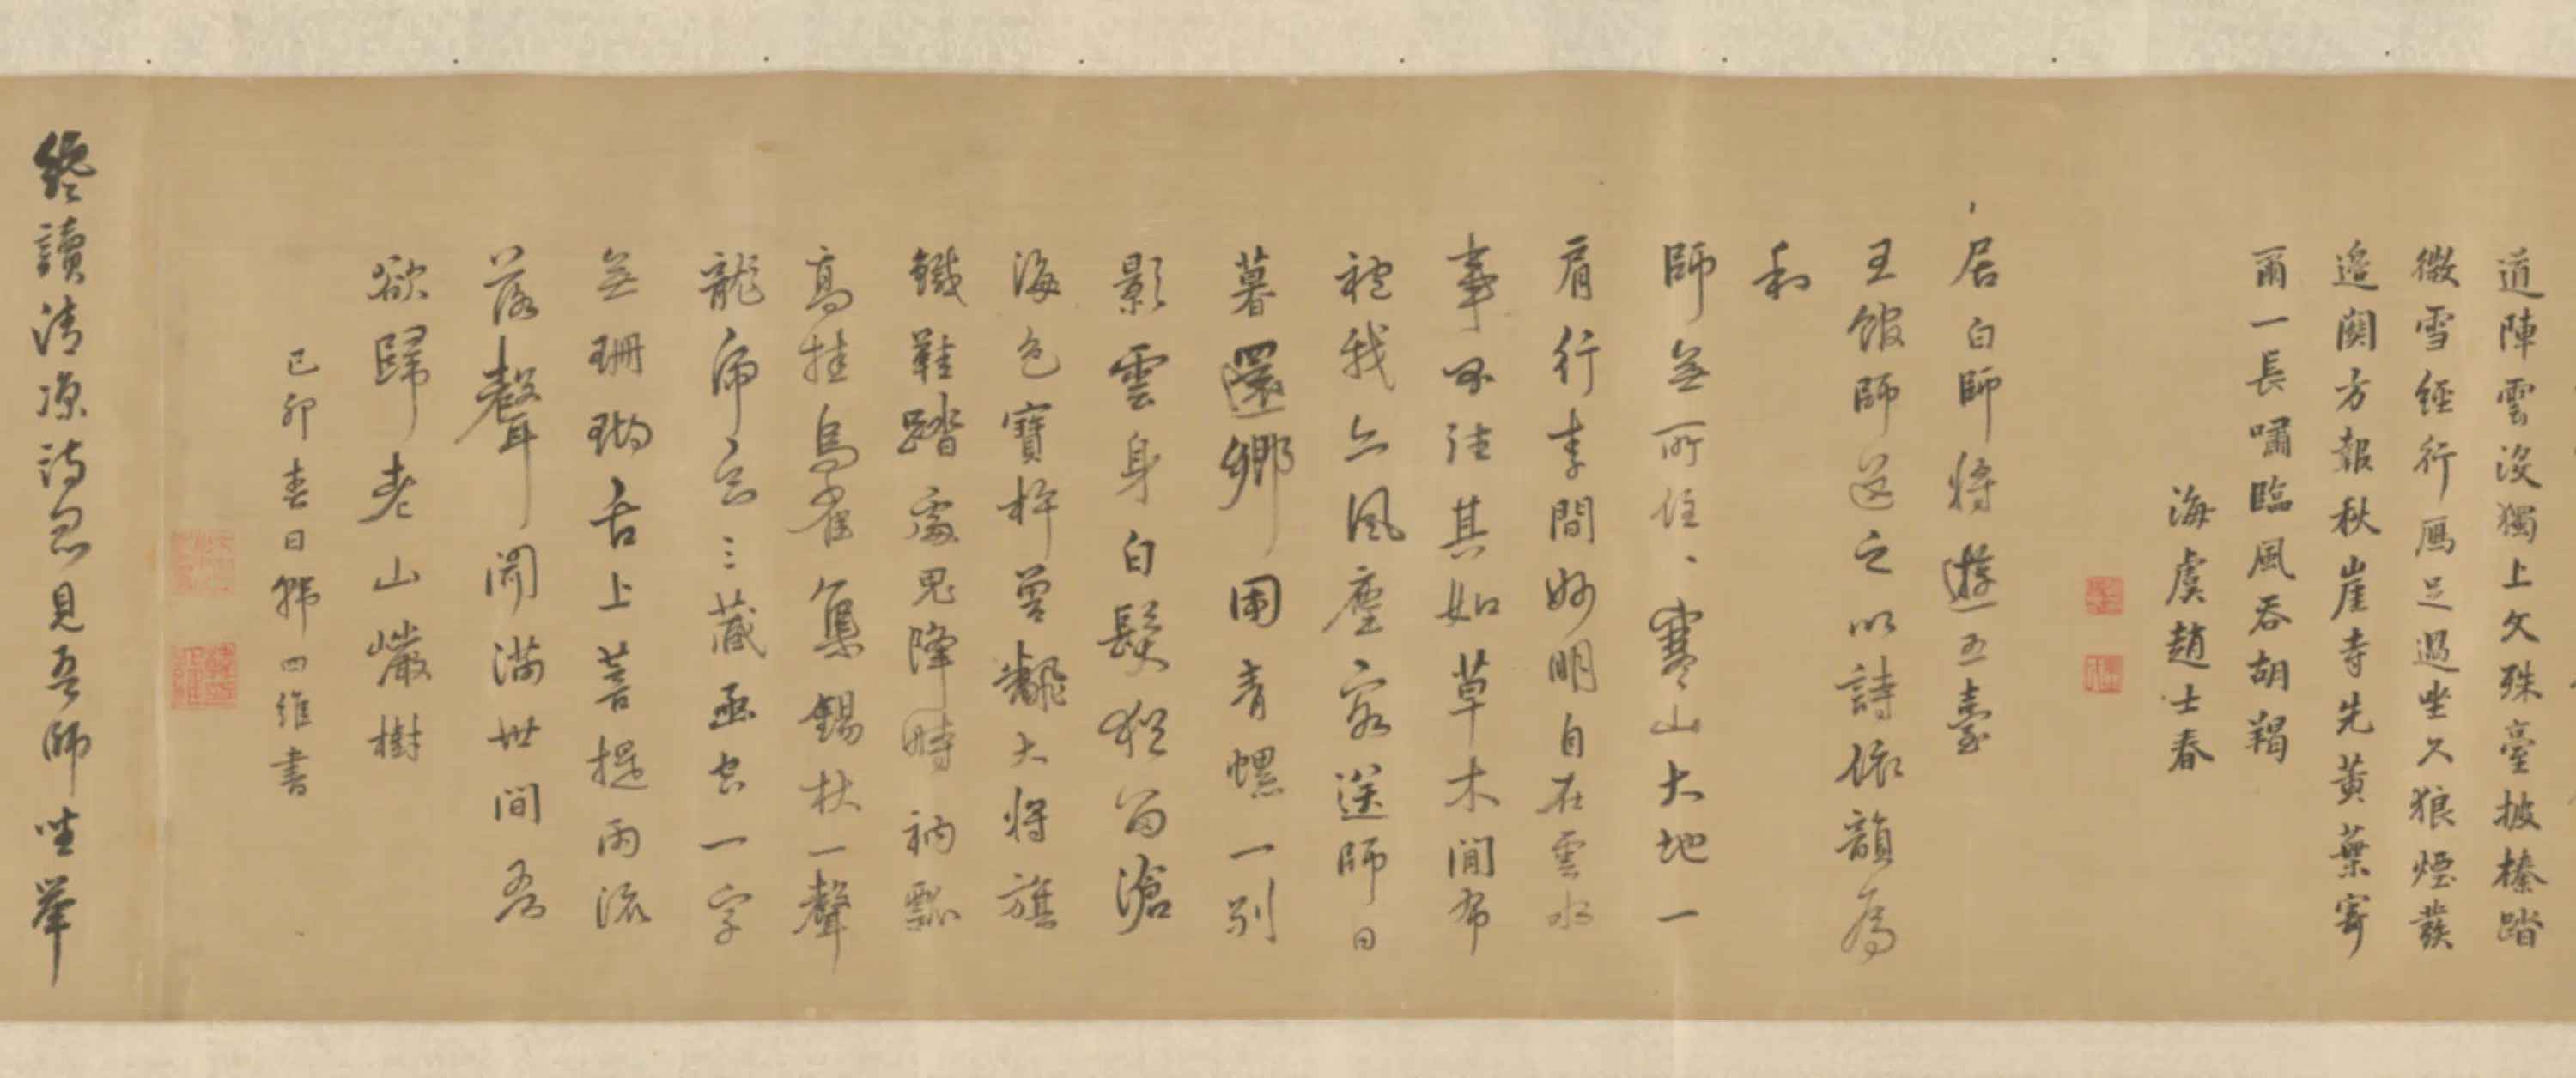 道陣雲沒獨上文殊臺披榛踏
微雪經行鳫足過坐久狼煙發
邉関方報秋崖寺先黃葉寄
爾一長嘯臨風吞胡羯
海虞趙士春
居白師將遊五臺
王館師送之以詩依韻為
和
師無所住、寒山大地一
肩行李間妙明自在雲水
事不註其如草木間布
袍我亦風塵客送師日
暮還鄉國青螺一別
影雲身白髮猶留滄
海色寶杵曾飜大將旗
鐵鞋踏處鬼降時衲瓢
高挂鳥雀集錫杖一聲
龍虎三藏函空一字
無珊瑚舌上菩提雨流
落聲聞滿世間吾
欲歸老山巖樹
己卯春日韓四維書
終讀清涼詩忽見吾師坐華